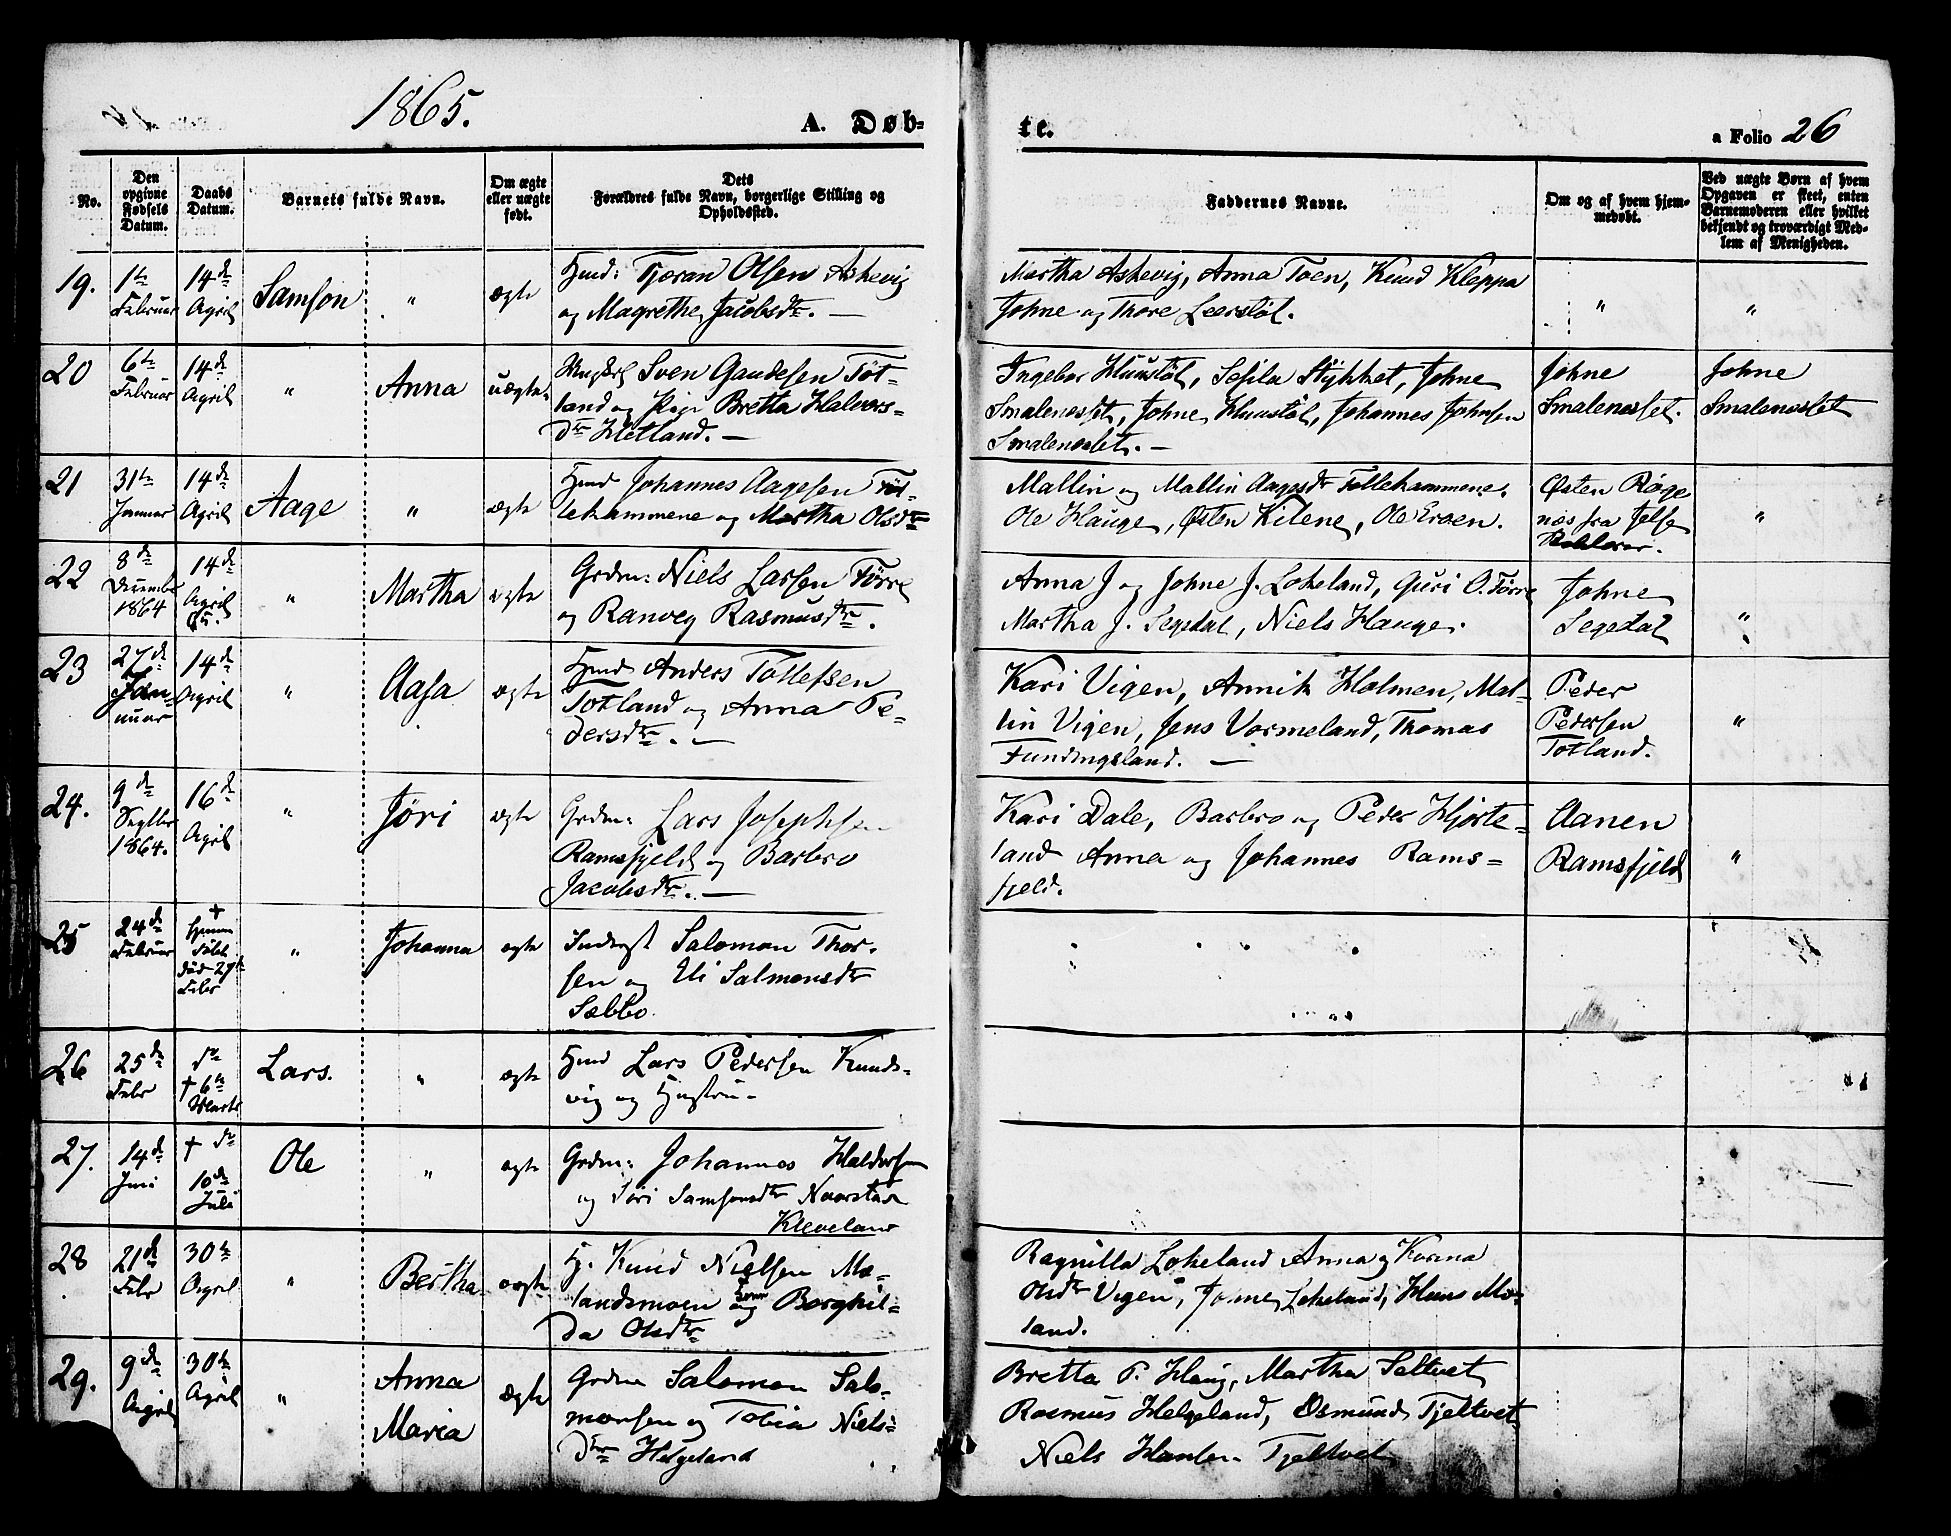 1865.
A. Døb-
te.
a Folio 26
No.
Den opgivne Fødsels Datum.
Daabs Datum.
Barnets fulde Navn.
Om ægte eller uægte født.
Dets Forældres fulde Navn, borgerlige Stilling og Opholdssted.
Faddernes Navne.
Om og af hvem hjemmedøbt.
Ved uægte Børn af hvem Opgaven er skeet, enten Barnemoderen eller hvilket bekjendt og troværdigt Medlem af Menigheden.
19. 1te Februar 14de April Samson " ægte
Hmd: Tjøran Olsen Askevig
og Magrethe Jacobsdtr. —
Martha Askevig, Anna Toen, Knud Kleppa
Johne og Thore Leerstøl.
" "
20 6te Februar 14de April " Anna uægte
Sven Gaudesen Tøt-
land og Pige Bretta Halvors-
dtr Hetland. —
Ingebor Huustøl, Sesila Stykket, Johne
Smalenesset, Johne Huustøl, Johannes Johnsen
Smalenesset. —
Johne
Smalenesset.
Johne
Smalenesset
21 31te Januar 14de April Aage " ægte
Hmd Johannes Aagesen Tol-
lekammene og Martha Olsdtr
Mallin og Mallin Aagesdtr Tollekammene,
Ole Hauge, Østen Kilene, Ole Eroen.
Østen Røge
næs fra Jelse
"
22 8de December 1864 14de April " Martha ægte
Grdm: Niels Larsen Tørre
og Ranveg Rasmusdtr.
Anna J og Johne J. Lokeland, Guri O. Tørre
Martha J. Segedal, Niels Hauge.
Johne
Segedal
"
23 27de Januar 14de April " Aasa ægte
Hmd Anders Tollefsen
Totland og Anna Pe-
dersdtr. —
Kari Vigen, Annik Holmen, Mal-
lin Vigen, Jens Vormeland, Thomas
Fundingsland. —
Peder
Pedersen
Totland.
"
24. 9de Septbr 1864. 16de April " Jøri ægte
Grdm: Lars Josephsen
Ramsfjeld og Barbro
Jacobsdtr. —
Kari Dale, Barbro og Peder Hjorte-
land Anna og Johannes Rams-
fjeld.
Aanen
Ramsfjeld
"
25 24de Februar † hjemmedøbt død 27de Febr " Johanna ægte
Inderst Salomon Thor-
sen og Eli Salmonsdtr
Sæbbø.
26 25de Febr do † 6te Marts Lars. " ægte
Hmd Lars Pedersen Knuds-
vig og Hustru -
27. 14de Juni † do 10de Juli Ole " ægte
Grdm: Johannes Haldorsen
og Siri Samsonsdtr Naarstad
Kleveland
28 21de Febr 30te April " Bertha ægte
H. Knud Nielsen Mæ-
landsmoen og Borghil-
da Olsdtr
Ragnilla Lokeland Anna og Korina
Olsdtr Vigen, Johne Lokeland, Hans Mæ-
land.
29. 9de April 30te April " Anna
Maria ægte
Grdm Salomon Salo-
monsen og Tobia Niels-
dtr Helgeland
Bretta P. Haug, Martha Seltvet
Rasmus Helgeland, Osmund Tjeltvet
Niels Hansen Tjeltvet